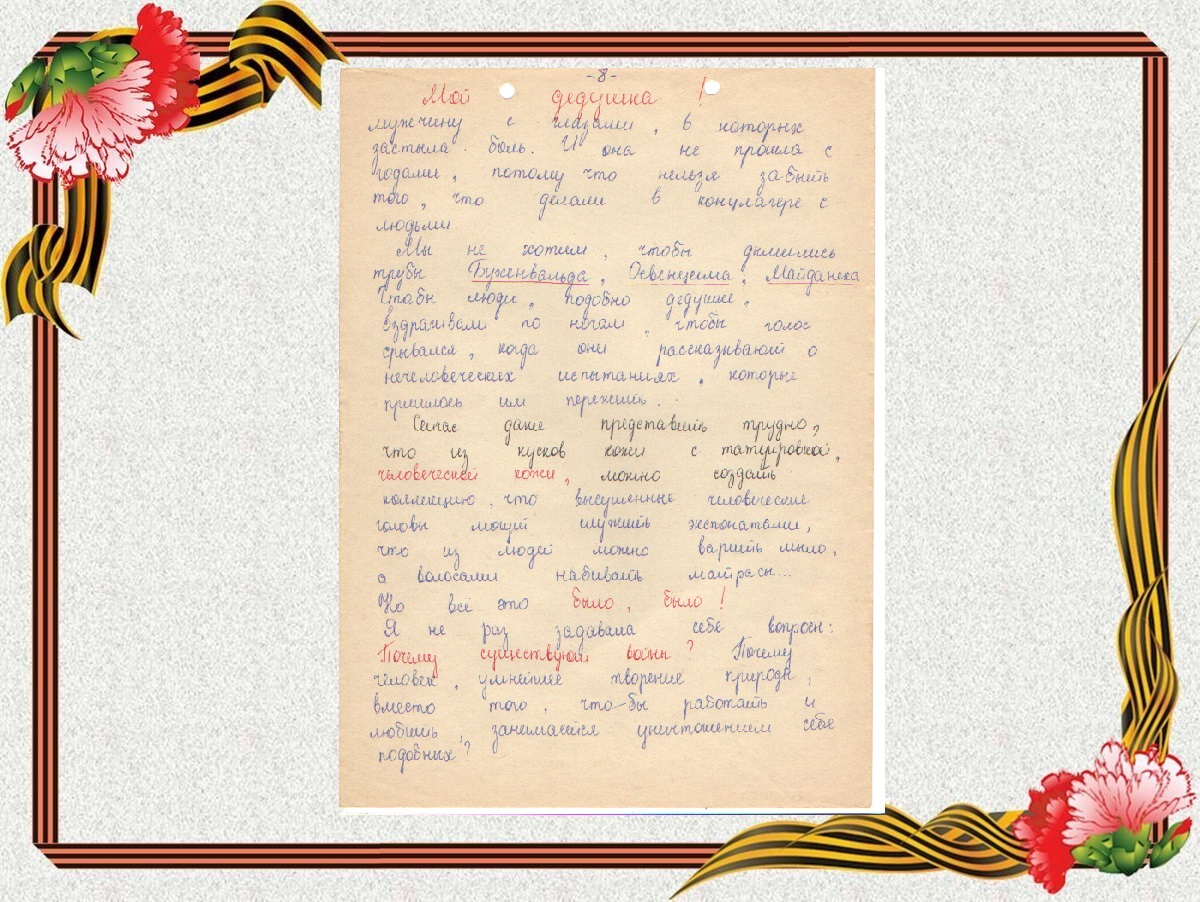 -8-
Мой дедушка !
мужчину с глазами, в которых
застыла боль. И она не прошла с
годами, потому что нельзя забыть
того, что делали в концлагере с
людьми
Мы не хотим, чтобы дымились
трубы Бухенвальда, Освенцима, Майданека
Чтобы люди, подобно дедушке,
вздрагивали по ночам, чтобы голос
срывался, когда они рассказывают о
нечеловеческих испытаниях, которые
пришлось им пережить.
Сейчас даже представить трудно,
что из кусков кожи с татуировкой,
человеческой кожи, можно создать
коллекцию, что высушенные человеческие
головы могут служить экспонатами,
что из людей можно варить мыло,
а волосами набивать матрасы...
Но всё это было, было!
Я не раз задавала себе вопросы:
Почему существуют войны? Почему
человек, умнейшее творение природы,
вместо того, что-бы работать и
любить, занимается уничтожением себе
подобных?